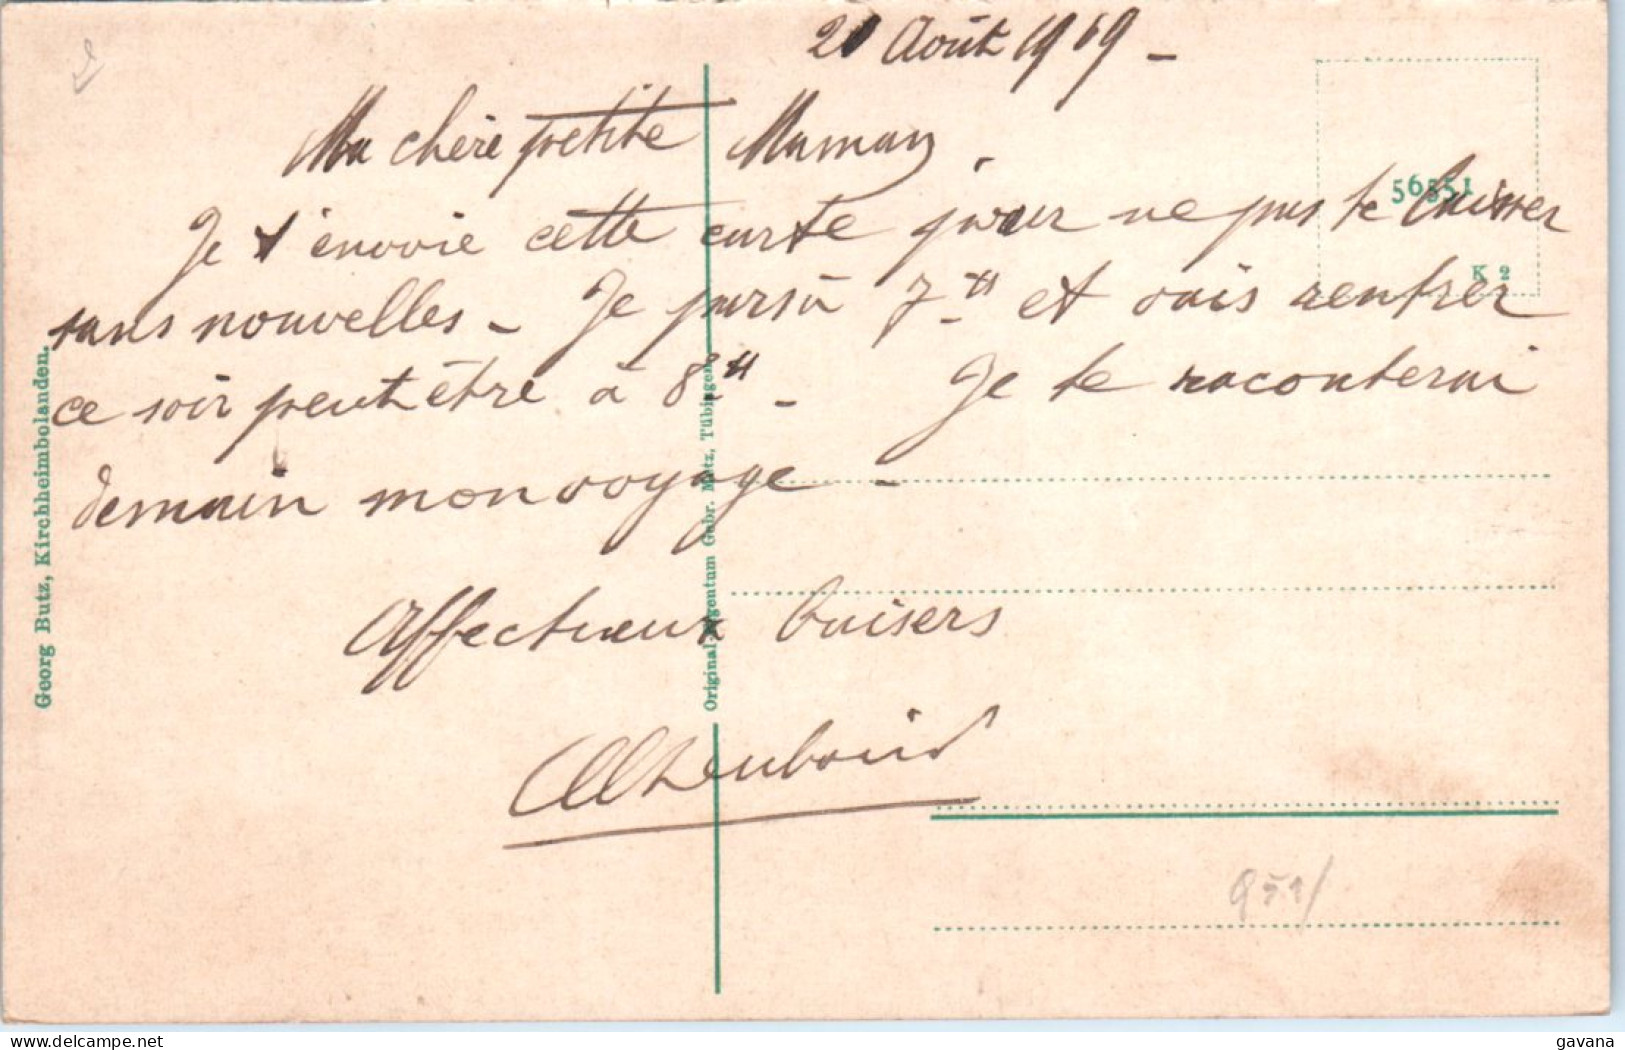 Août 19
Ma chère petite Maman.
Je t'envoie cette carte pour ne pas te laisser
sans nouvelles - Je pars à 7 et vais rentrer
ce soir peut être à 8 - Je te raconterai
demain mon voyage -
Affectueux baisers
56551
K 2
Georg Butz, Kirchheimbolanden.
Original-Eigentum Gebr. Metz, Tübingen.
gavana